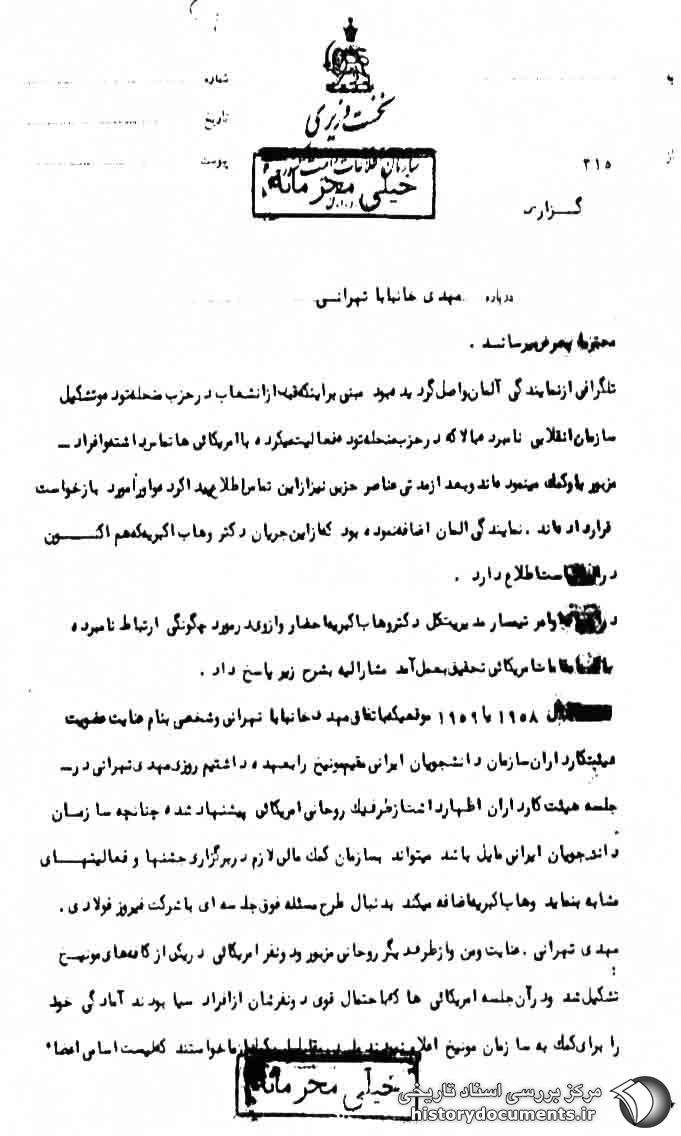 به
شماره
نخست وزیری
تاریخ
از
۳۱۵
پیوست
سازمان اطلاعات و امنیت کشور
خیلی محرمانه
گزارش
درباره مهدی خانبابا تهرانی
محترما بعرض میرساند .
تلگرافی از نمایندگی آلمان واصل گردیده بود مبنی بر اینکه قبل از انشعاب در حزب منحله توده و تشکیل
سازمان انقلابی نامبرده بالا که در حزب منحله توده فعالیت میکرده با امریکائی ها تماس داشته و افراد
مزبور باو کمک مینموده اند و بعد از مدتی عناصر حزبی نیز از این تماس اطلاع پیدا کرده و او را مورد بازخواست
قرار داده اند . نمایندگی المان اضافه نموده بود که از این جریان دکتر وهاب اکبریه که هم اکنون
در است اطلاع دارد .
اوامر تیمسار مدیریت کل دکتر وهاب اکبریه احضار و از وی در مورد چگونگی ارتباط نامبرده
با مقامات امریکائی تحقیق بعمل آمد مشارالیه بشرح زیر پاسخ داد .
۱۹۵۸ یا ۱۹۵۹ موقعیکه باتفاق مهدی خانبابا تهرانی و شخصی بنام عنایت عضویت
هیئت کارداران سازمان دانشجویان ایرانی مقیم مونیخ را بعهده داشتیم روزی مهدی تهرانی در
جلسه هیئت کارداران اظهار داشت از طرف یک روحانی امریکائی پیشنهاد شده چنانچه سازمان
دانشجویان ایرانی مایل باشد میتواند بسازمان کمک مالی لازم در برگزاری جشنها و فعالیتهای
مشابه بنماید وهاب اکبریه اضافه میکند بدنبال طرح مسئله فوق جلسه ای با شرکت فیروز فولادی .
مهدی تهرانی . عنایت و من و از طرف دیگر روحانی مزبور و دو نفر امریکائی در یکی از کافه های مونیخ
تشکیل شد و در آن جلسه امریکائی ها که باحتمال قوی دو نفرشان از افراد سیا بودند آمادگی خود
را برای کمک به سازمان مونیخ اعلام نمودند ما خواستند که لیست اسامی اعضاء
خیلی محرمانه
مرکز بررسی اسناد تاریخی
historydocuments.ir